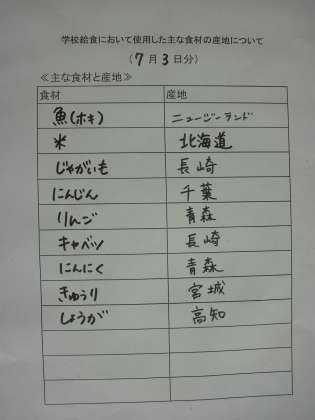 学校給食において使用した主な食材の産地について
(7月3日分)
≪主な食材と産地≫
食材 産地
魚(ホキ) ニュージーランド
米 北海道
じゃがいも 長崎
にんじん 千葉
りんご 青森
キャベツ 長崎
にんにく 青森
きゅうり 宮城
しょうが 高知